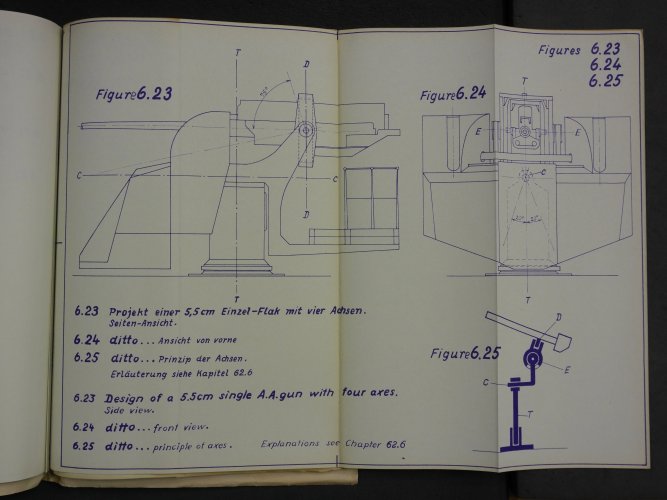 Figures 6.23
6.24
6.25
Figure 6.23
Figure 6.24
T
D
75°
C
C
D
T
T
E
E
C
T
6.23 Projekt einer 5,5cm Einzel-Flak mit vier Achsen.
Seiten-Ansicht.
6.24 ditto... Ansicht von vorne
6.25 ditto... Prinzip der Achsen.
Erläuterung siehe Kapitel 62.6
6.23 Design of a 5.5cm single A.A. gun with four axes.
Side view.
6.24 ditto... front view.
6.25 ditto... principle of axes. Explanations see Chapter 62.6
Figure 6.25
D
E
C
T